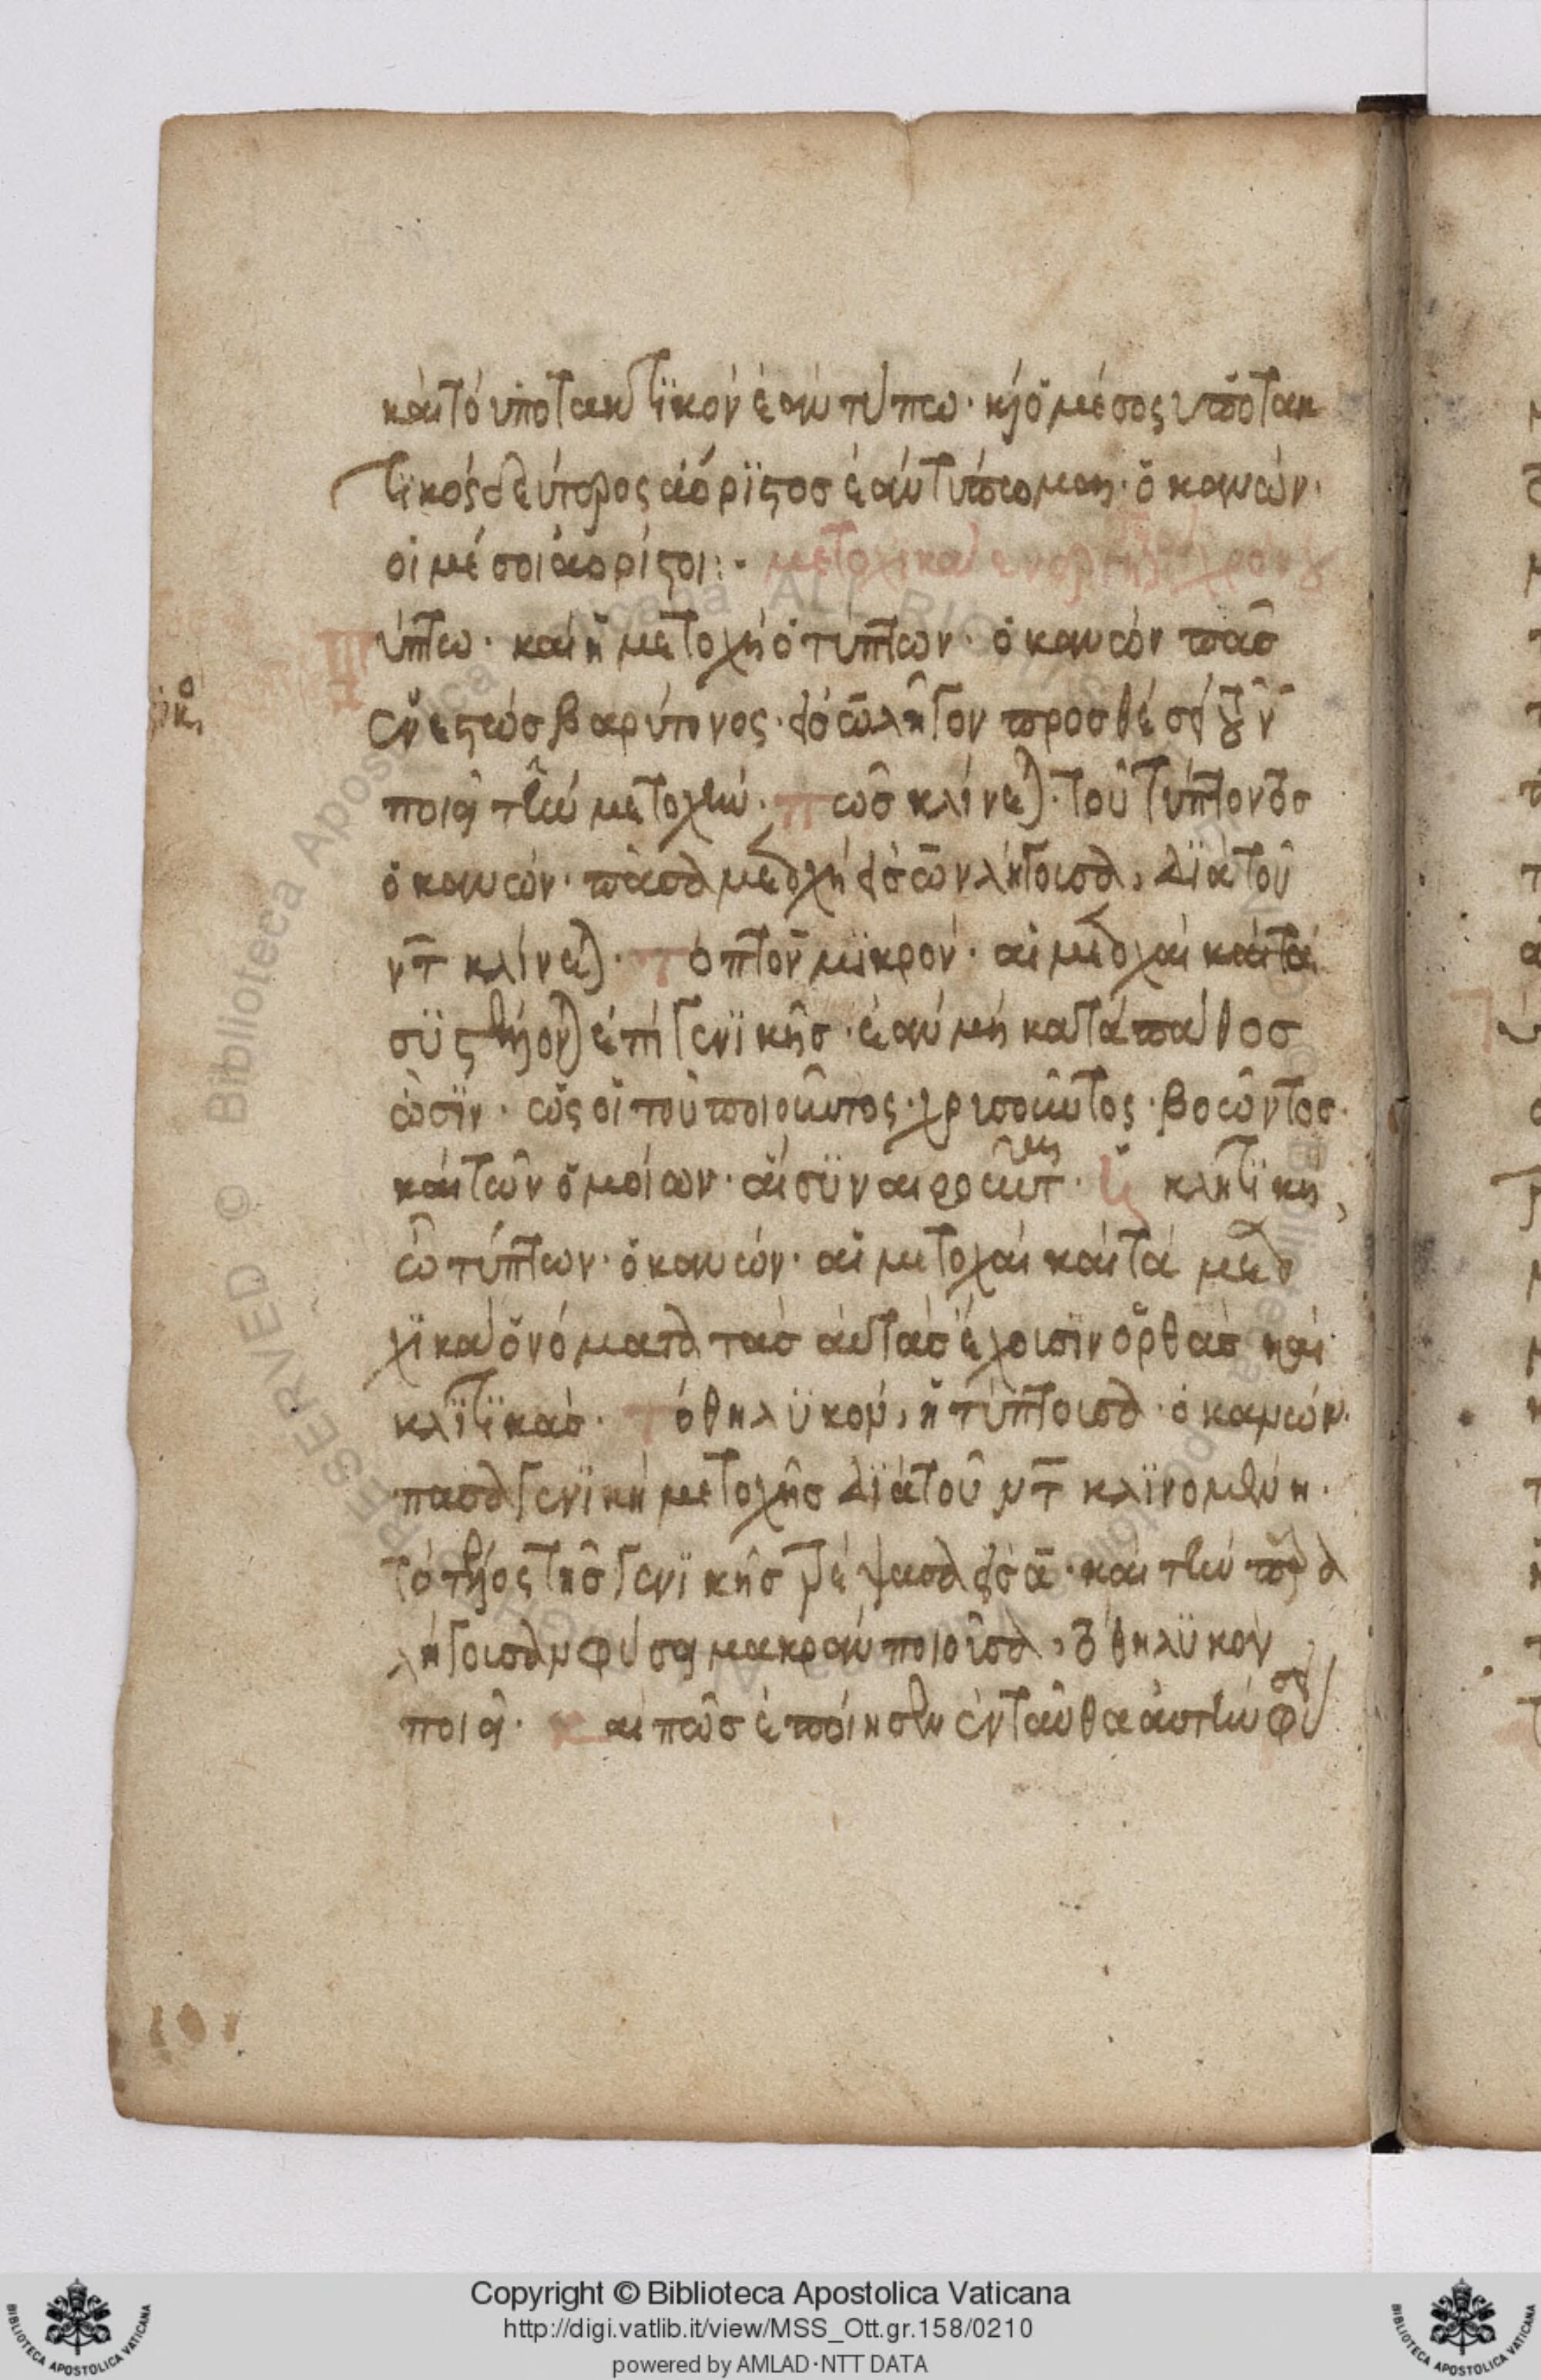 καὶ τὸ ὑποτακτϊκὸν ἐὰν τύπω· κὶ ὁ μέσος ὑποτακ
τϊκὸς δεύτερος ἀόρϊστοσ ἐὰν τύπωμαι· ὁ κανών·
οἱ μέσοι ἀόριστοι:· μετοχικὰ
ύπτω· καὶ ἡ μετοχὴ ὁ τύπτων· ὁ κανὼν πᾶσ
ἐνεστὼσ βαρύτονος· εἰσ ω λῆγον προσθέσει τοῦ ν
ποιεῖ τὴν μετοχήν· πῶσ κλίνεται· τοῦ τύπτοντοσ
ὁ κανών· πᾶσα μετοχὴ εἰσ ων λήγουσα, δϊὰ τοῦ
ντ κλίνεται· τὸ πτον μϊκρόν· αἱ μετοχαὶ καὶ τὰ
συστέλλονται ἐπὶ γενϊκῆσ· ἐὰν μὴ κατὰ πάθοσ
ὦσϊν· ὡς οἱ τοῦ ποιοῦντος· χρισοῦντος· βοῶντοσ·
καὶ τῶν ὁμοίων· αἱ σϋναιροῦντ· ἡ κλητϊκὴ
ὦ τύπτων· ὁ κανών· αἱ μετοχαὶ καὶ τὰ μετο
χϊκὰ ὀνόματα τὰσ αὐτὰσ ἔχουσϊν ὀρθὰσ καὶ
κλϊτϊκάσ· τὸ θηλϋκὸν, ἡ τύπτουσα· ὁ κανών·
πᾶσα γενϊκὴ μετοχῆσ δϊὰ τοῦ ντ κλϊνομένη·
τὸ τέλος τῆσ γενϊκῆσ τρέψασα εἰσ α· καὶ τὴν παρα
λήγουσαν φύσει μακρὰν ποιοῦσα, τὸ θηλϋκὸν
ποιεῖ· καὶ πῶσ ἐποίησεν ἐνταῦθα αὐτὴν φύσει
Copyright © Biblioteca Apostolica Vaticana
http://digi.vatlib.it/view/MSS_Ott.gr.158/0210
powered by AMLAD·NTT DATA